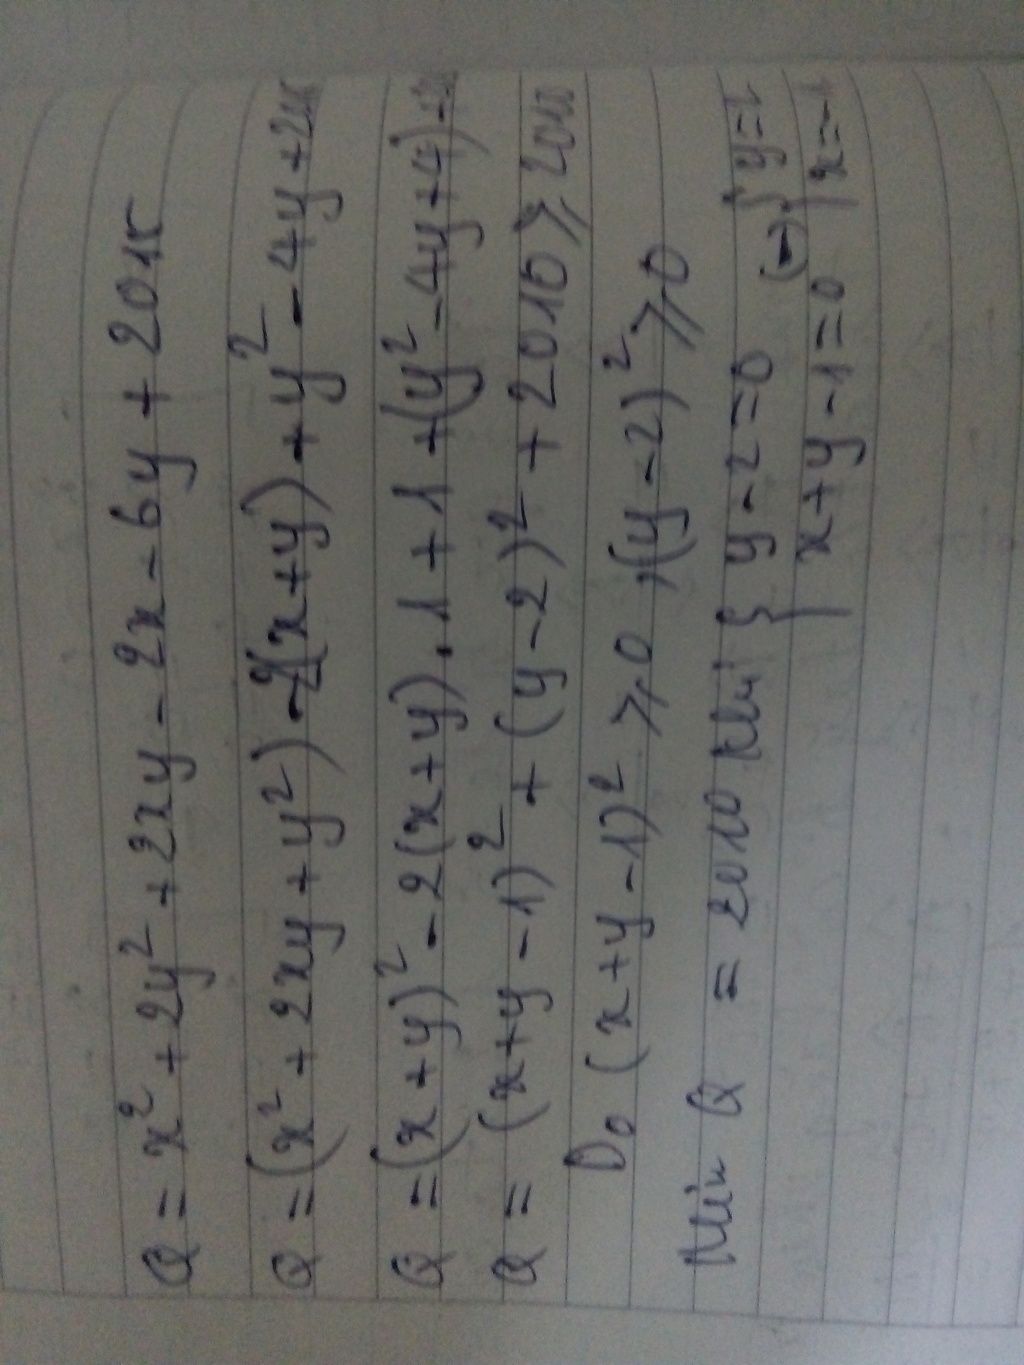 Q = x² + 2y² + 2xy - 2x - 6y + 2015
Q = (x² + 2xy + y²) - 2(x+y) + y² - 4y + 2015
Q = (x+y)² - 2(x+y).1 + 1 + (y² - 4y + 4) +
Q = (x+y-1)² + (y-2)² + 2010 ≥ 2010
Do (x+y-1)² ≥ 0, (y-2)² ≥ 0
Min Q = 2010 khi { y-2=0 (=) { y=2
x+y-1=0 x=-1